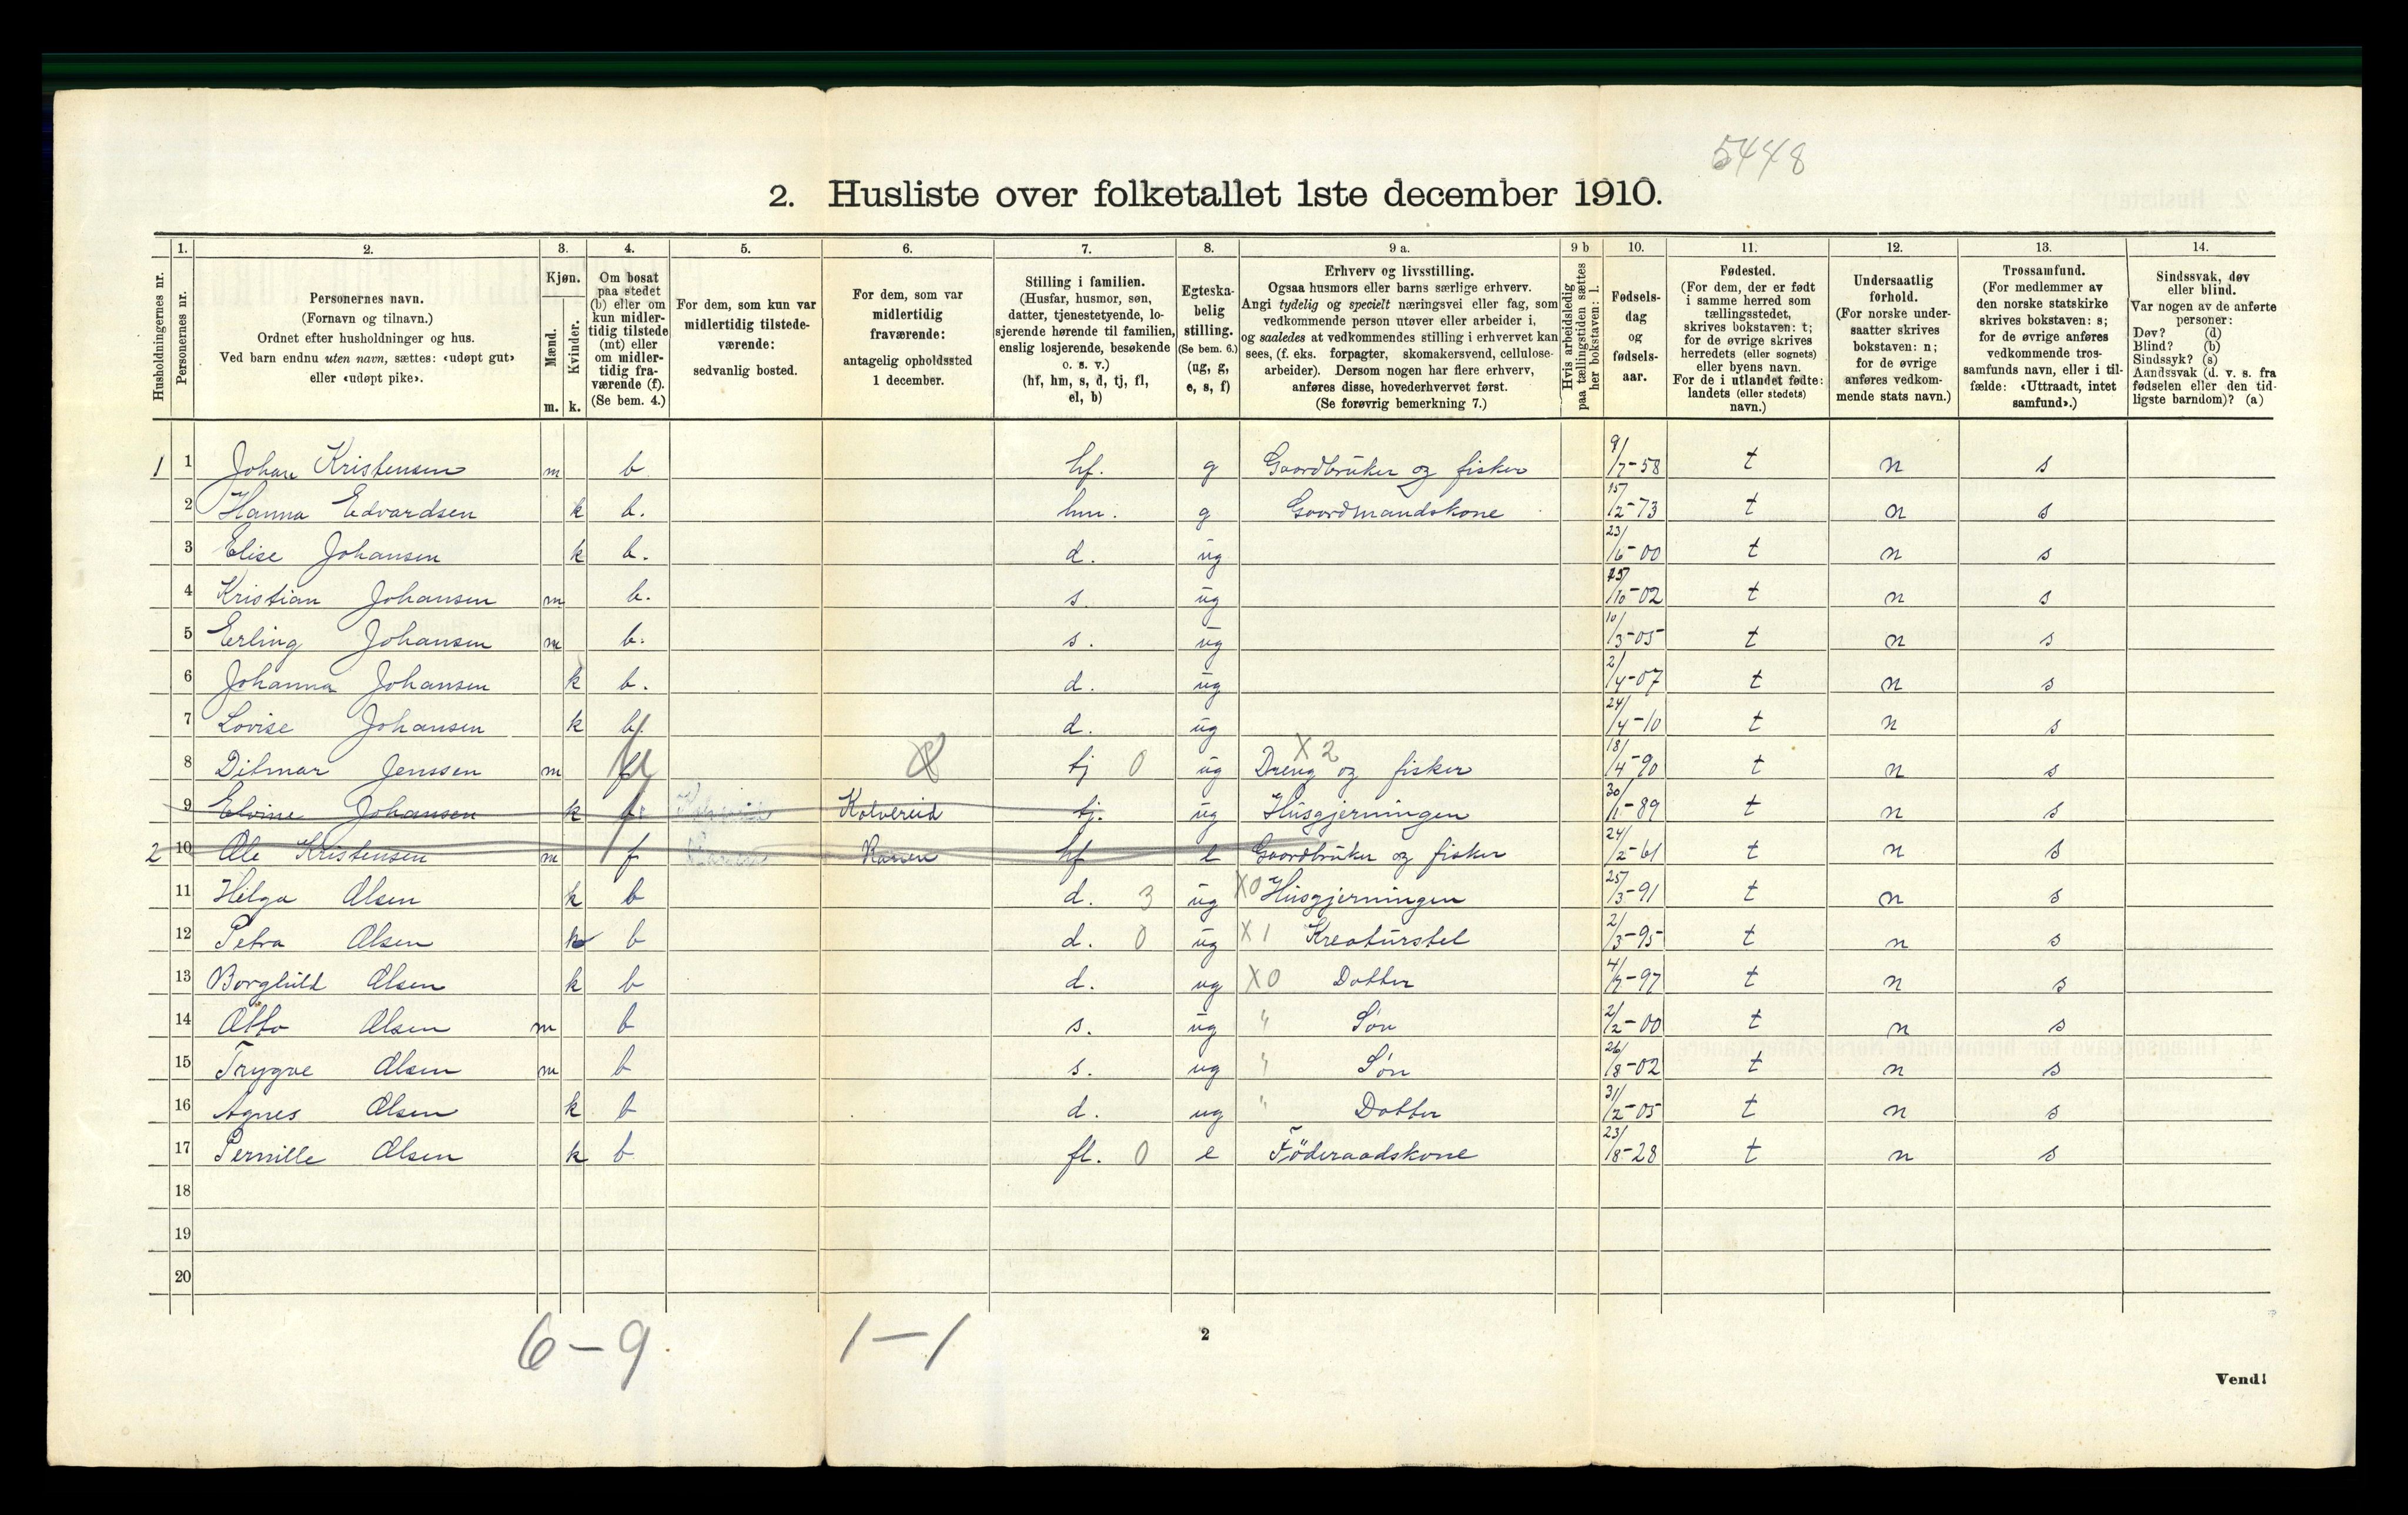 5448
2. Husliste over folketallet 1ste december 1910.
Husholdningernes nr.
1. Personernes nr.
2. Personernes navn. (Fornavn og tilnavn.) Ordnet efter husholdninger og hus. Ved barn endnu uten navn, sættes: «udøpt gut» eller «udøpt pike».
3. Kjøn. Mænd. m. Kvinder. k.
4. Om bosat paa stedet (b) eller om kun midlertidig tilstede (mt) eller om midlertidig fraværende (f). (Se bem. 4.)
5. For dem, som kun var midlertidig tilstedeværende: sedvanlig bosted.
6. For dem, som var midlertidig fraværende: antagelig opholdssted 1 december.
7. Stilling i familien. (Husfar, husmor, søn, datter, tjenestetyende, losjerende hørende til familien, enslig losjerende, besøkende o. s. v.) (hf, hm, s, d, tj, fl, el, b)
8. Egteskabelig stilling. (Se bem. 6.) (ug, g, e, s, f)
9 a. Erhverv og livsstilling. Ogsaa husmors eller barns særlige erhverv. Angi tydelig og specielt næringsvei eller fag, som vedkommende person utøver eller arbeider i, og saaledes at vedkommendes stilling i erhvervet kan sees, (f. eks. forpagter, skomakersvend, cellulosearbeider). Dersom nogen har flere erhverv, anføres disse, hovederhvervet først. (Se forøvrig bemerkning 7.)
9 b Hvis arbeidsledig paa tællingstiden sættes her bokstaven: l.
10. Fødselsdag og fødselsaar.
11. Fødested. (For dem, der er født i samme herred som tællingsstedet, skrives bokstaven: t; for de øvrige skrives herredets (eller sognets) eller byens navn. For de i utlandet fødte: landets (eller stedets) navn.)
12. Undersaatlig forhold. (For norske undersaatter skrives bokstaven: n; for de øvrige anføres vedkommende stats navn.)
13. Trossamfund. (For medlemmer av den norske statskirke skrives bokstaven: s; for de øvrige anføres vedkommende trossamfunds navn, eller i tilfælde: «Uttraadt, intet samfund».)
14. Sindssvak, døv eller blind. Var nogen av de anførte personer: Døv? (d) Blind? (b) Sindssyk? (s) Aandssvak (d. v. s. fra fødselen eller den tidligste barndom)? (a)
1 1 Johan Kristensen m b hf. g Gaardbruker og fisker 9/7-58 t n s
2 Hanna Edvardsen k b. hm. g Gaardmandskone 15/2-73 t n s
3 Elise Johansen k b. d. ug 23/6-00 t n s
4 Kristian Johansen m b. s. ug 25/10-02 t n s
5 Erling Johansen m b. s. ug 10/3-05 t n s
6 Johanna Johansen k b. d. ug 2/4-07 t n s
7 Lovise Johansen k b. d. ug 24/4-10 t n s
8 Ditmar Jenssen m tj 0 ug X 2 Dreng og fisker 18/4-90 t n s
9 Elvine Johansen k f Kolvereid tj. ug Husgjerningen 30/1-89 t n s
2 10 Ole Kristensen m f Ranen hf e Gaardbruker og fisker 24/2-61 t n s
11 Helga Olsen k b d. 3 ug X0 Husgjerningen 25/3-91 t n s
12 Petra Olsen k b d. 0 ug X 1 Kreaturstel 2/3-95 t n s
13 Borghild Olsen k b d. ug X0 Datter 4/7-97 t n s
14 Otto Olsen m b s. ug " Søn 2/2-00 t n s
15 Trygve Olsen m b s. ug " Søn 26/8-02 t n s
16 Agnes Olsen k b d. ug " Datter 31/2-05 t n s
17 Pernille Olsen k b fl. 0 e Föderaadskone 23/8-28 t n s
18
19
20
6-9. 1-1
2
Vend!